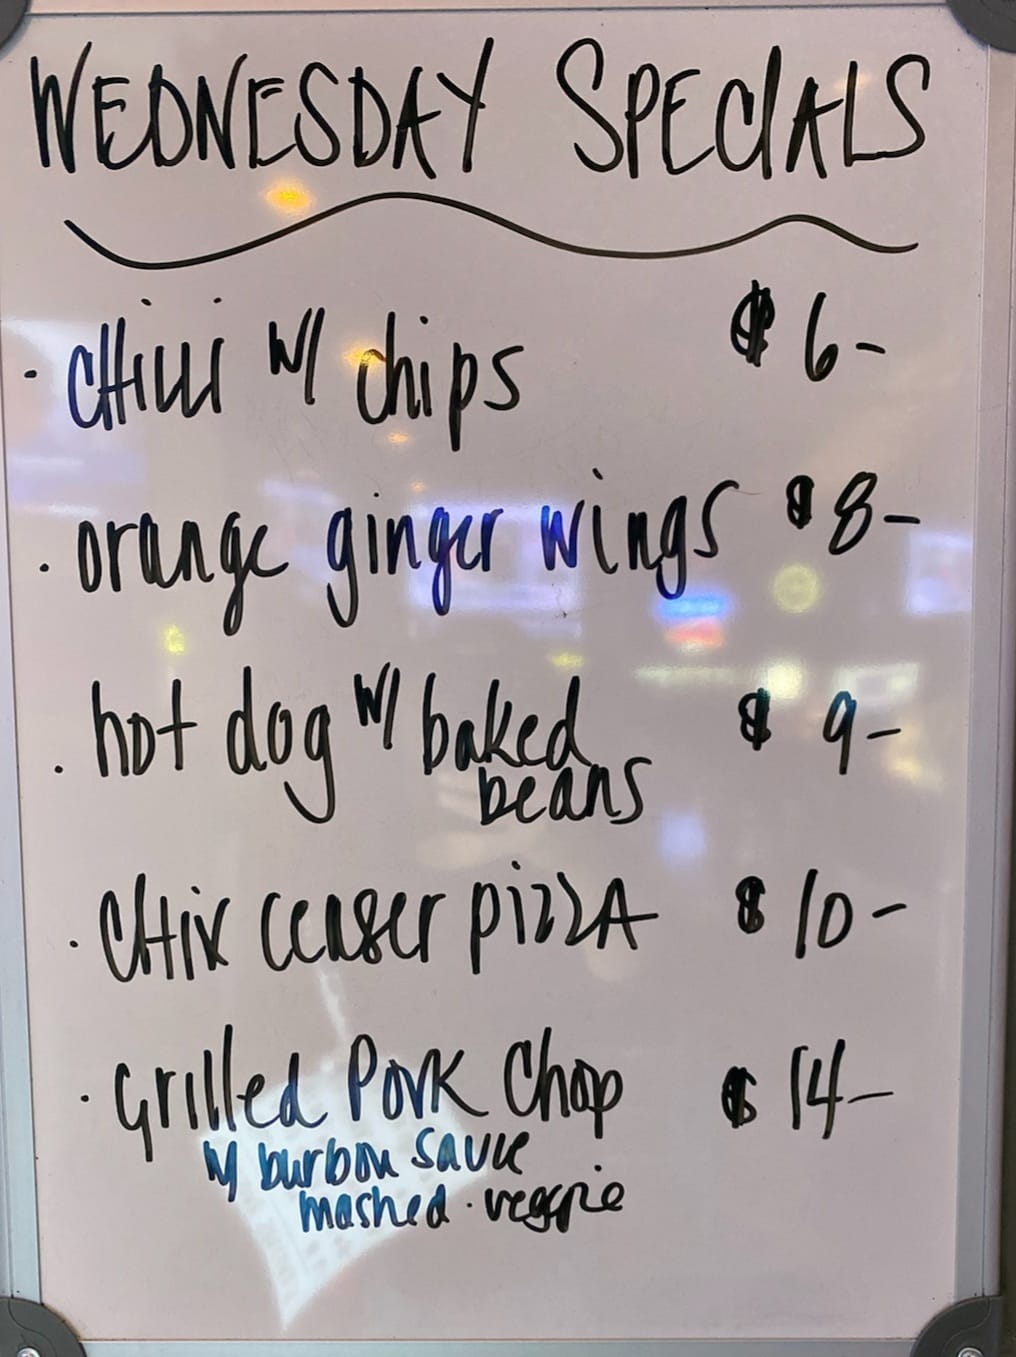 WEDNESDAY SPECIALS
· CHilli w/ chips $ 6-
· orange ginger wings $ 8-
· hot dog w/ baked $ 9-
beans
· CHix ceaser pizzA $ 10-
· Grilled Pork Chop $ 14-
w/ burbon sauce
mashed · veggie